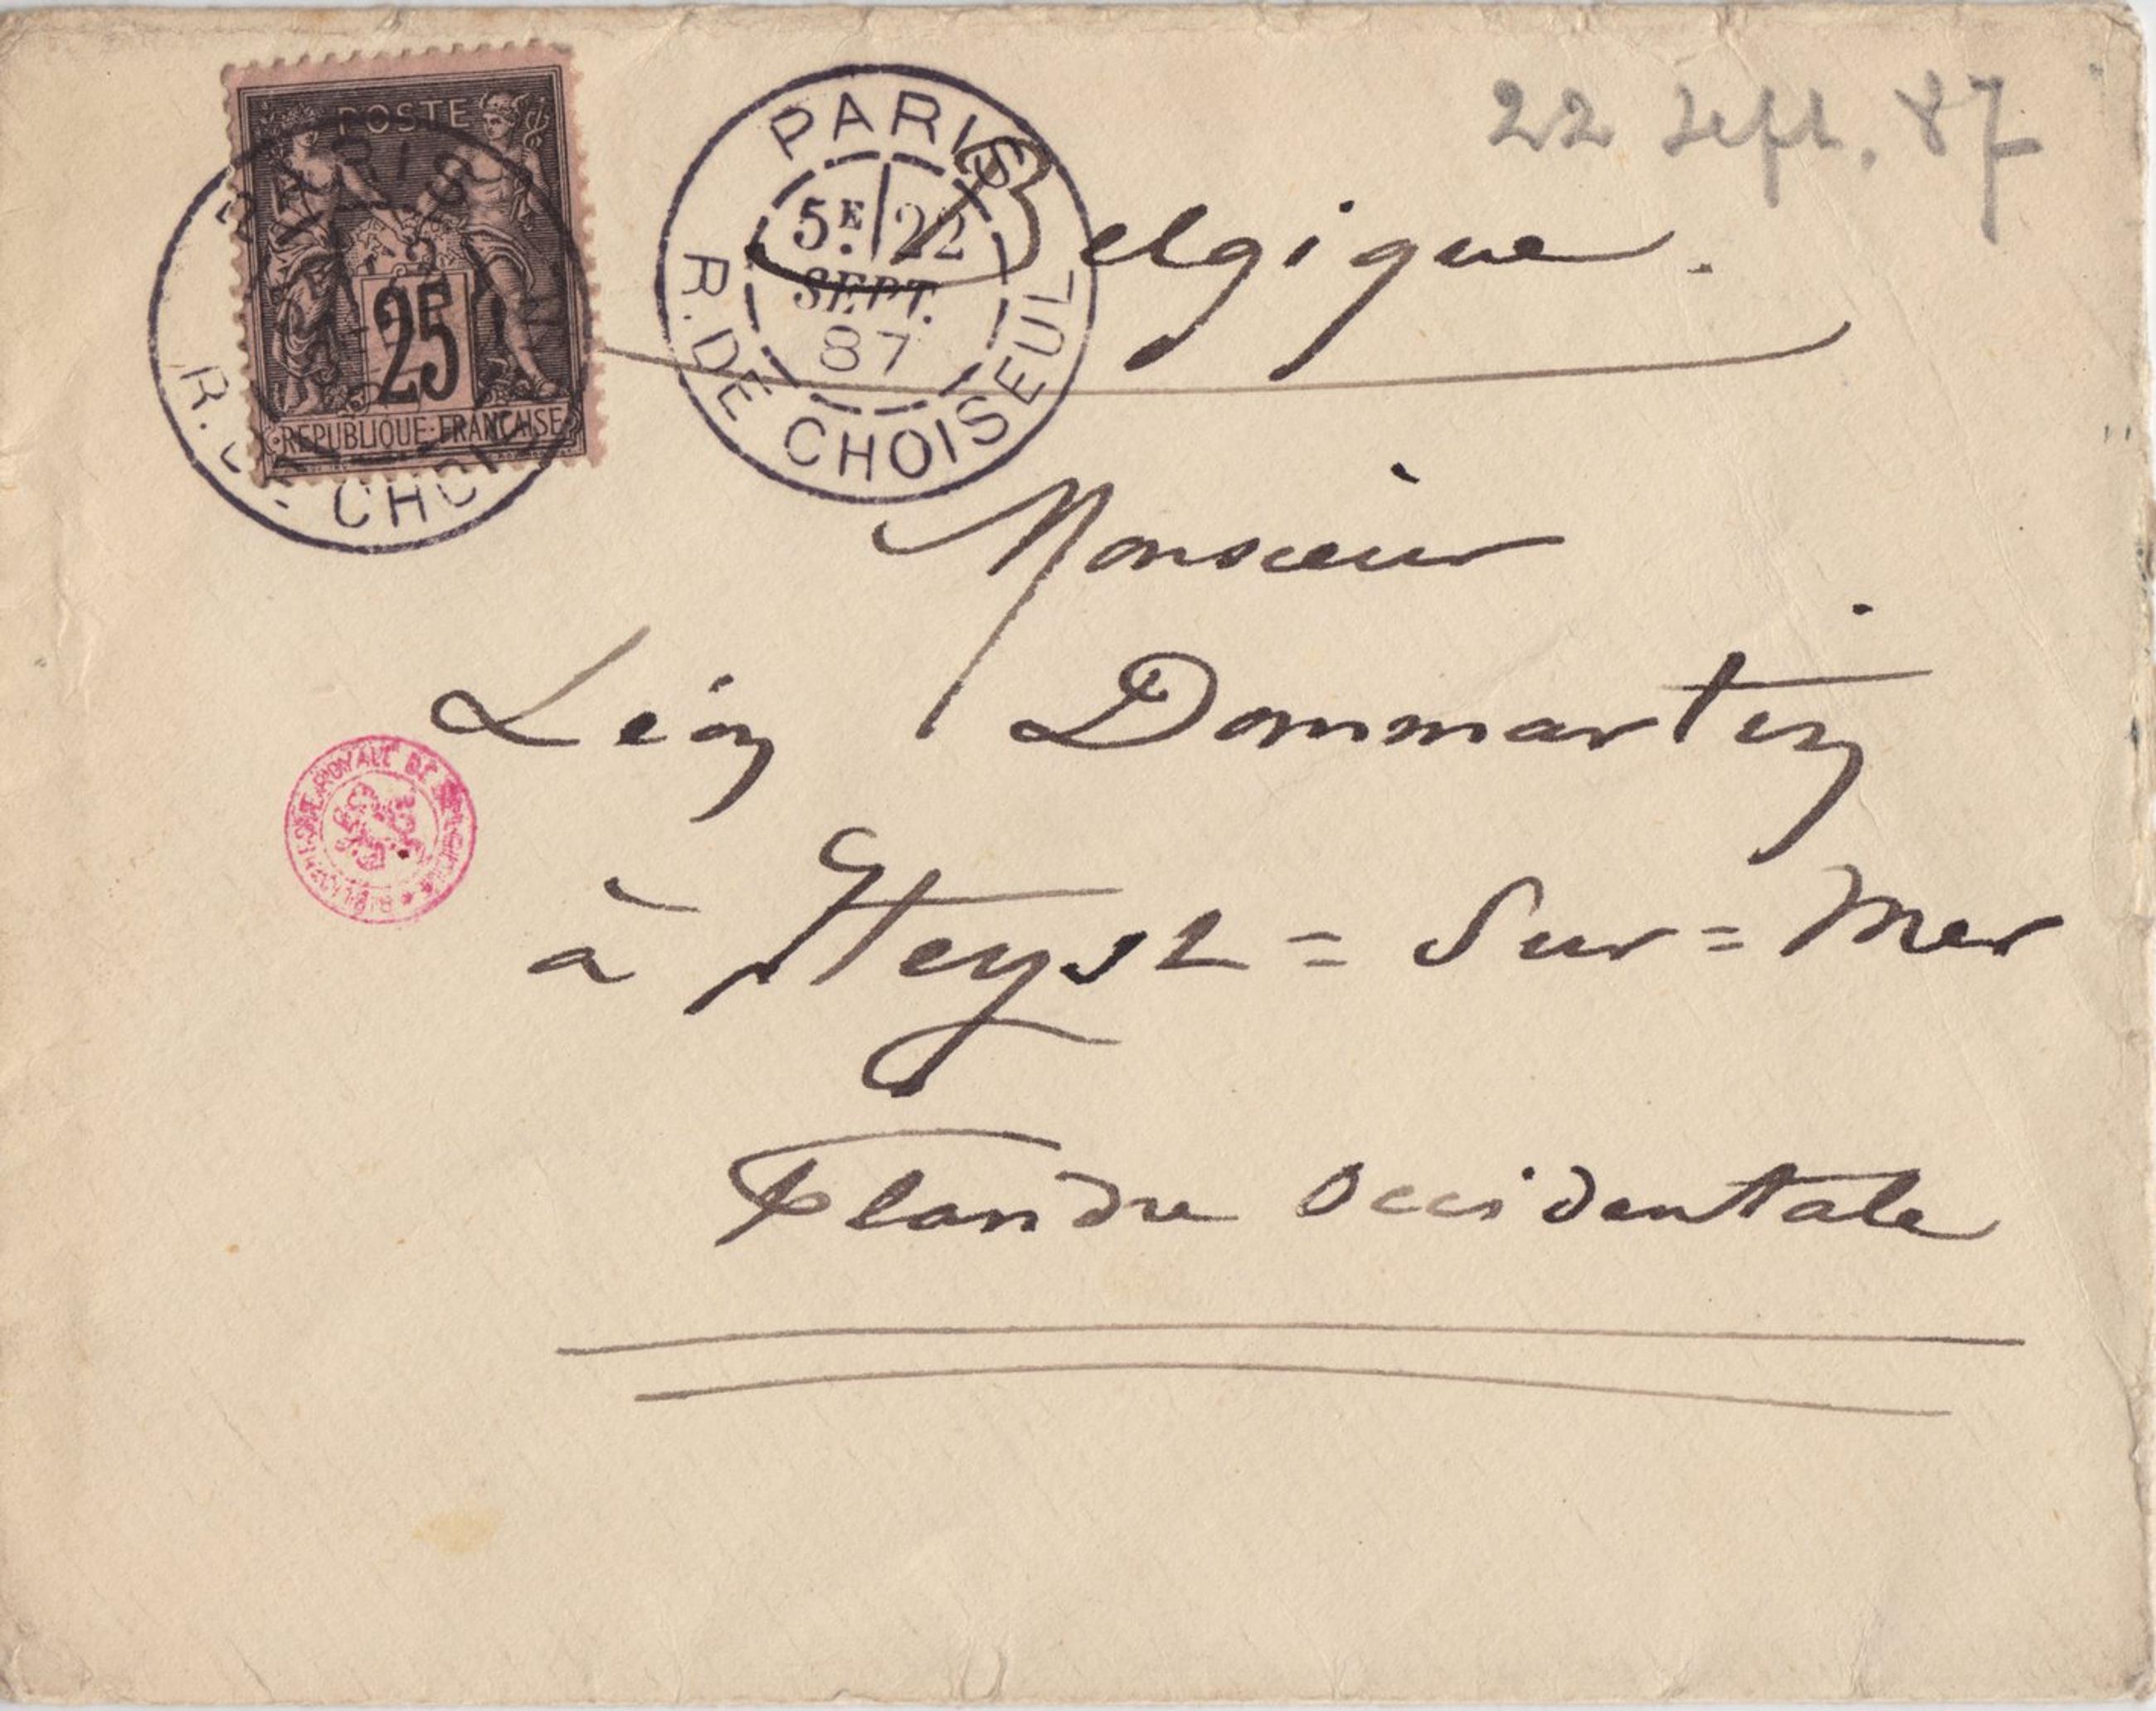 22 Sept. 87
POSTE
25
REPUBLIQUE FRANCAISE
PARIS
R. CHOI
PARIS
5E 22
SEPT.
87
R. DE CHOISEUL
Belgique.
Monsieur
Léon Dommartin
à Heyst = Sur = Mer
Flandre Occidentale
ROYALE DE